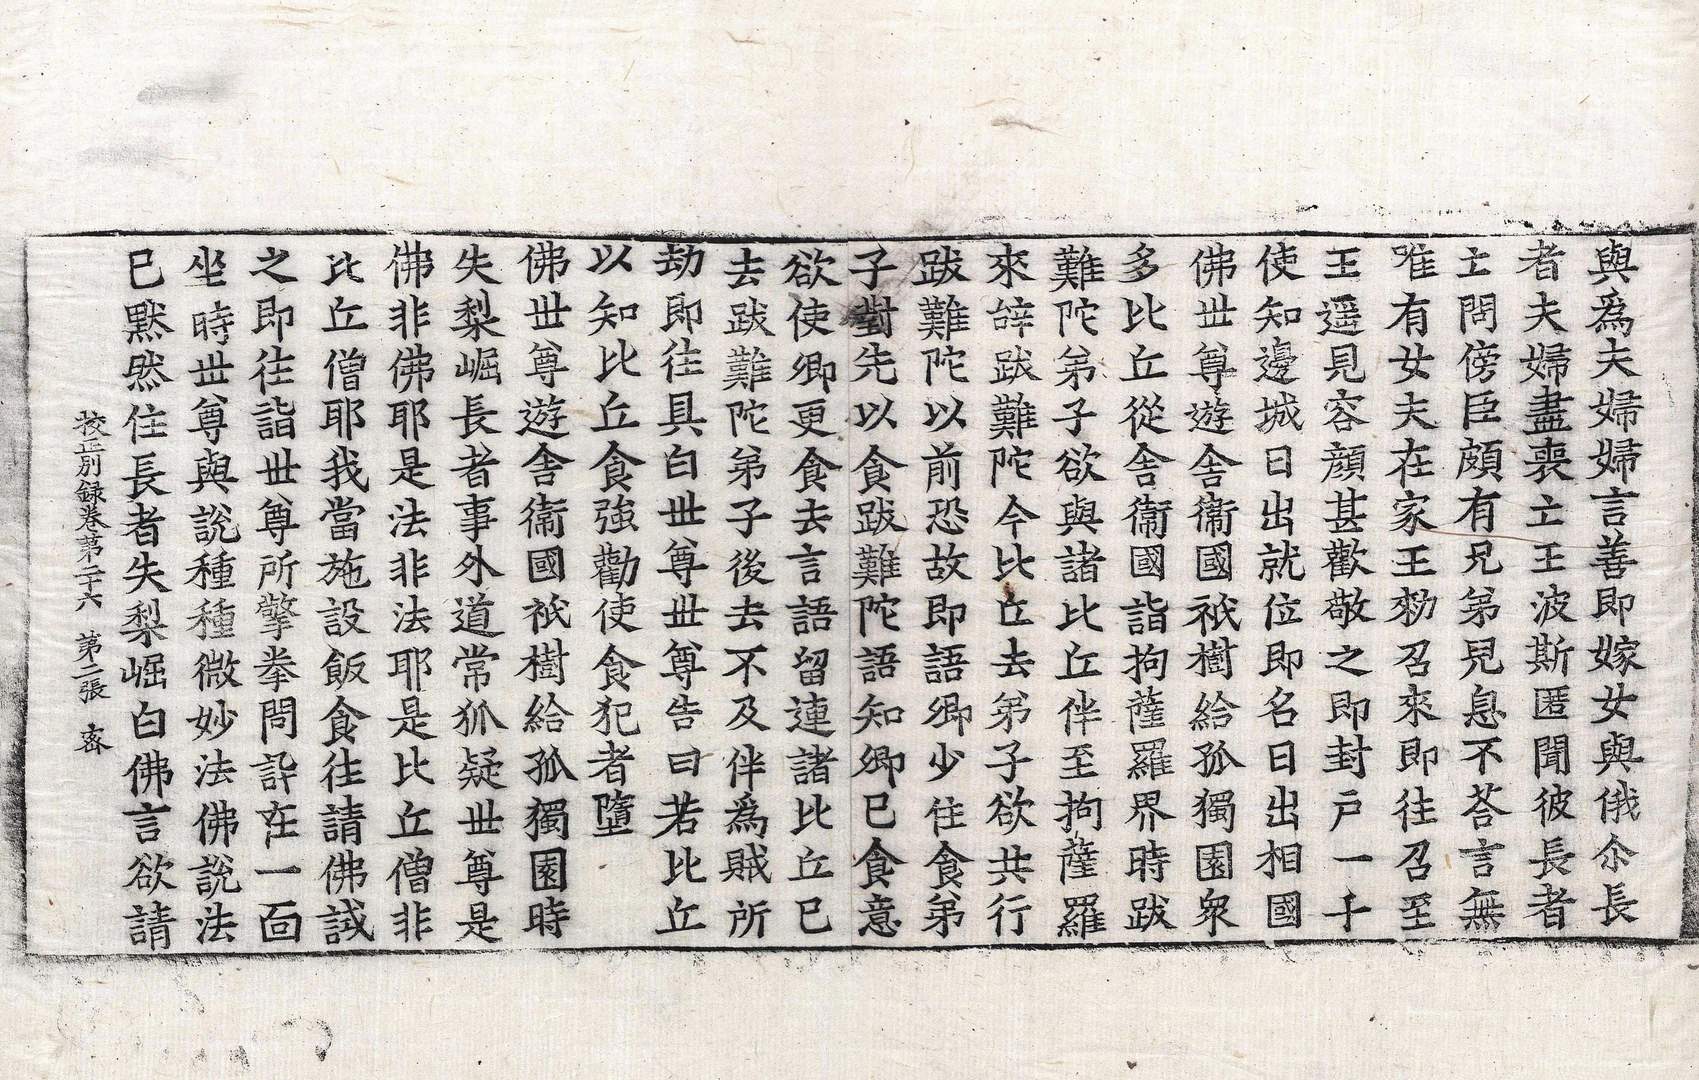 與爲夫婦婦言善即嫁女與俄尒長
者夫婦盡喪亡王波斯匿聞彼長者
亡問傍臣頗有兄弟兒息不荅言無
唯有女夫在家王勑召來即往召至
王遥見容顔甚歡敬之即封戶一千
使知邊城日出就位即名日出相國
佛世尊遊舍衞國祇樹給孤獨園衆
多比丘從舍衞國詣拘薩羅界時跋
難陀弟子欲與諸比丘伴至拘薩羅
來辝跋難陀今比丘去弟子欲共行
跋難陀以前恐故即語卿少住食弟
子對先以食跋難陀語知卿已食意
欲使卿更食去言語留連諸比丘已
去跋難陀弟子後去不及伴爲賊所
劫即往具白世尊世尊告曰若比丘
以知比丘食強勸使食犯者墮
佛世尊遊舍衞國祇樹給孤獨園時
失梨崛長者事外道常狐疑世尊是
佛非佛耶是法非法耶是比丘僧非
比丘僧耶我當施設飯食往請佛試
之即往詣世尊所擎拳問訊在一面
坐時世尊與說種種微妙法佛說法
已默然住長者失梨崛白佛言欲請
校正別録卷第二十六　第二張　宻